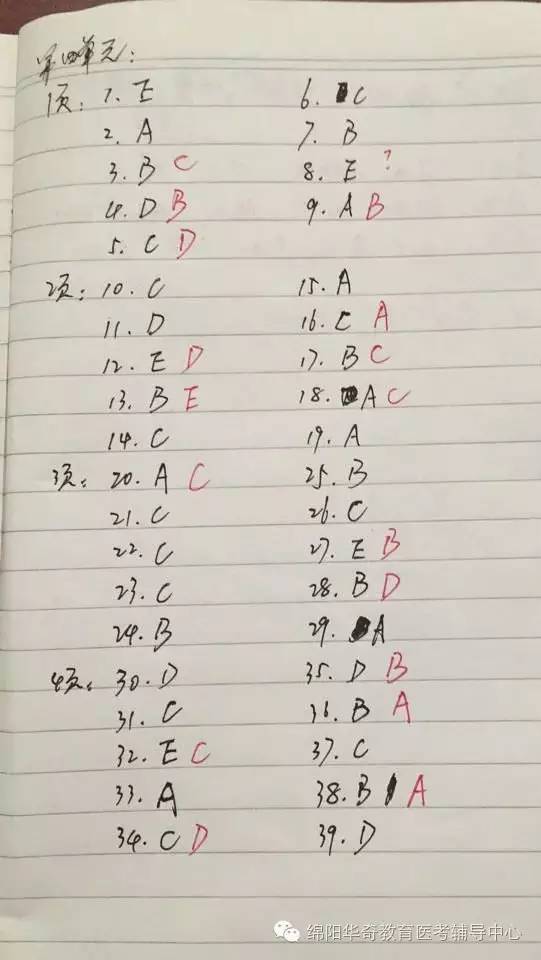 第四单元:
1页: 1. E 6. C
2. A 7. B
3. B C 8. E ?
4. D B 9. A B
5. C D
2页: 10. C 15. A
11. D 16. C A
12. E D 17. B C
13. B E 18. A C
14. C 19. A
3页: 20. A C 25. B
21. C 26. C
22. C 27. E B
23. C 28. B D
24. B 29. A
4页: 30. D 35. D B
31. C 36. B A
32. E C 37. C
33. A 38. B A
34. C D 39. D
绵阳华奇教育医考辅导中心